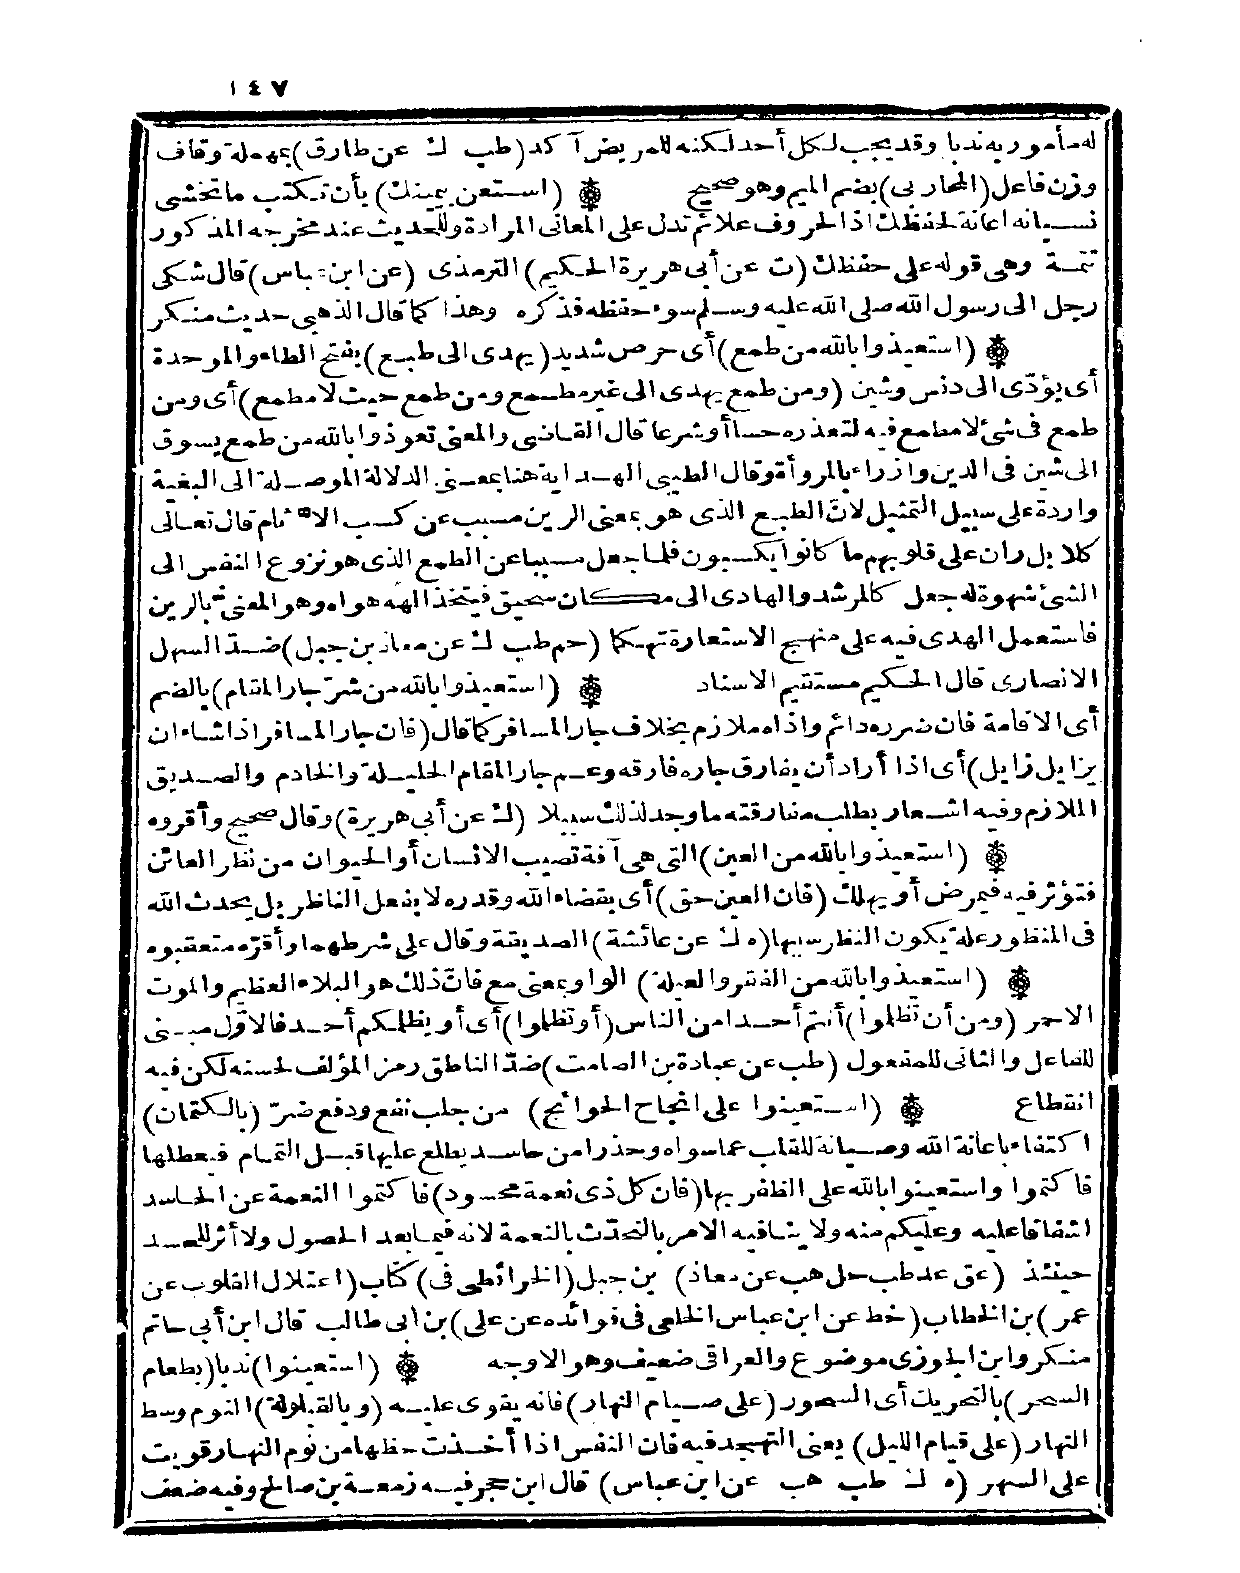 ١٤٧
له مأمور به ندبا وقد يجب لكل أحد لكنه للمريض آكد (طب ك عن طارق) بمهملة وقاف
وزن فاعل (المحاربي) بضم الميم وهو صحيح ۞ (استعن بيمينك) بأن تكتب ما تخشى
نسيانه اعانة لحفظك اذ الحروف علائم تدل على المعاني المرادة وللحديث عند مخرجه المذكور
تتمة وهي قوله على حفظك (ت عن أبي هريرة الحكيم) الترمذي (عن ابن عباس) قال شكى
رجل الى رسول الله صلى الله عليه وسلم سوء حفظه فذكره وهذا كما قال الذهبي حديث منكر
۞ (استعيذوا بالله من طمع) أى حرص شديد (يهدى الى طبع) بفتح الطاء والموحدة
أى يؤدّى الى دنس وشين (ومن طمع يهدى الى غير مطمع ومن طمع حيث لا مطمع) أى ومن
طمع فى شئ لا مطمع فيه لتعذره حسا أو شرعا قال القاضى والمعنى تعوذوا بالله من طمع يسوق
الى شين فى الدين وازراء بالمروأة وقال الطيبى الهداية هنا بمعنى الدلالة الموصلة الى البغية
واردة على سبيل التمثيل لانّ الطبع الذى هو بمعنى الرين مسبب عن كسب الآثام قال تعالى
كلا بل ران على قلوبهم ما كانوا يكسبون فلما جعل مسببا عن الطمع الذى هو نزوع النفس الى
الشئ شهوة له جعل كالمرشد والهادى الى مكان سحيق فيتخذ الهه هواه وهو المعنىّ بالرين
فاستعمل الهدى فيه على منهج الاستعارة تهكما (حم طب ك عن معاذ بن جبل) ضدّ السهل
الانصارى قال الحكيم مستقيم الاسناد ۞ (استعيذوا بالله من شرّ جار المقام) بالضم
أى الاقامة فان ضرره دائم واذاه ملازم بخلاف جار المسافر كما قال (فان جار المسافر اذا شاء ان
يزايل زايل) أى اذا أراد أن يفارق جاره فارقه وعم جار المقام الحليلة والخادم والصديق
الملازم وفيه اشعار بطلب مفارقته ما وجد لذلك سبيلا (ك عن أبى هريرة) وقال صحيح وأقروه
۞ (استعيذوا بالله من العين) التى هى آفة تصيب الانسان أو الحيوان من نظر العائن
فتؤثر فيه فيمرض أو يهلك (فان العين حق) أى بقضاء الله وقدره لا بفعل الناظر بل يحدث الله
فى المنظور علة يكون النظر سببها (ه ك عن عائشة) الصديقة وقال على شرطهما وأقرّه متعقبوه
۞ (استعيذوا بالله من الفقر والعيلة) الواو بمعنى مع فانّ ذلك هو البلاء العظيم والموت
الاحمر (ومن أن تظلموا) أنتم أحدا من الناس (أو تظلموا) أى أو يظلمكم أحد فالاوّل مبنى
للفاعل والثانى للمفعول (طب عن عبادة بن الصامت) ضدّ الناطق رمز المؤلف لحسنه لكن فيه
انقطاع ۞ (استعينوا على انجاح الحوائج) من جلب نفع ودفع ضرّ (بالكتمان)
اكتفاء باعانة الله وصيانة للقلب عما سواه وحذرا من حاسد يطلع عليها قبل التمام فيعطلها
فاكتموا واستعينوا بالله على الظفر بها (فان كل ذى نعمة محسود) فاكتموا النعمة عن الحاسد
اشفاقا عليه وعليكم منه ولا ينافيه الامر بالتحدّث بالنعمة لانه فيما بعد الحصول ولا أثر للحسد
حينئذ (عق عد طب حل هب عن معاذ) بن جبل (الخرائطى فى) كتاب (اعتلال القلوب عن
عمر) بن الخطاب (خط عن ابن عباس الخلعى فى فوائده عن على) بن ابى طالب قال ابن أبى حاتم
منكر وابن الجوزى موضوع والعراقى ضعيف وهو الاوجه ۞ (استعينوا) ندبا (بطعام
السحر) بالتحريك أى السحور (على صيام النهار) فانه يقوى عليه (وبالقيلولة) النوم وسط
النهار (على قيام الليل) يعنى التهجد فيه فان النفس اذا أخذت حظها من نوم النهار قويت
على السهر (ه ك طب هب عن ابن عباس) قال ابن حجر فيه زمعة بن صالح وفيه ضعف